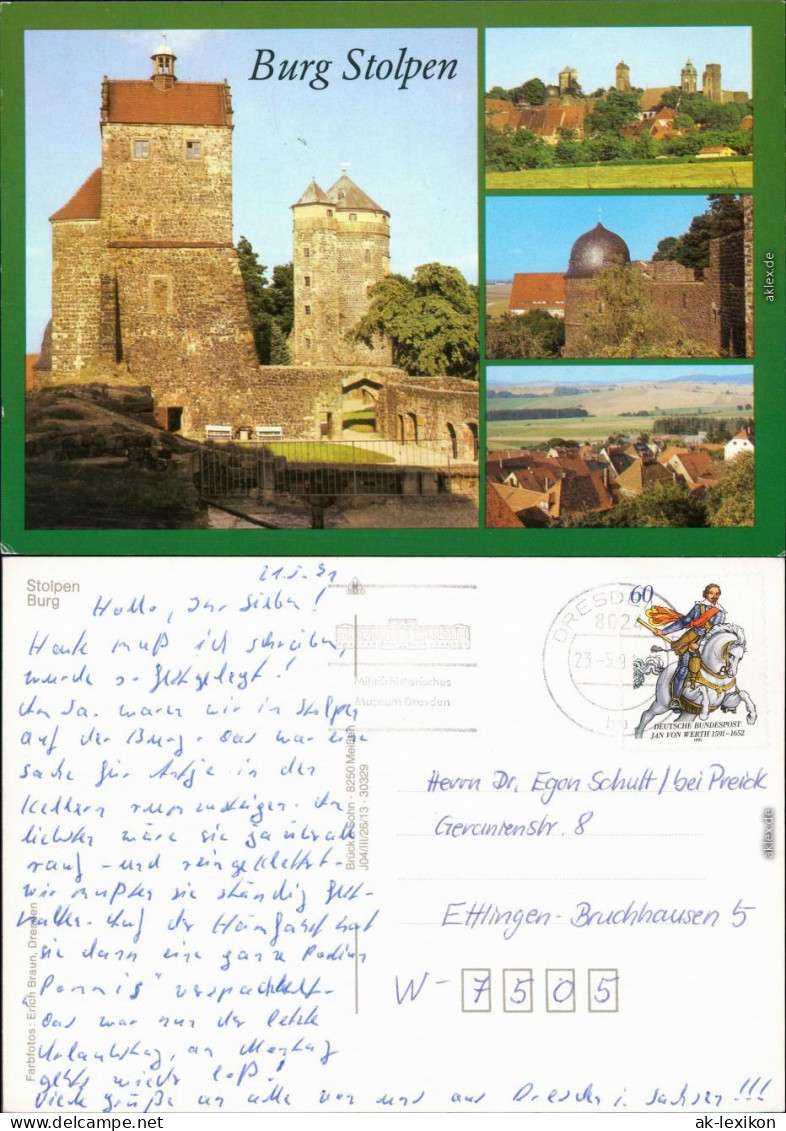 Burg Stolpen
aklex.de
Stolpen
Burg
21.5.91
Hallo, Ihr Lieben!
Heute muß ich schreiben,
wurde so festgelegt!
Am Sa. waren wir in Stolpen
auf der Burg. Das war eine
Sache für Antje in den
Kellern rumzusteigen. Am
liebsten wäre sie ja überall
rauf - und reingeklettert -
wir mußten sie ständig fest-
halten. Auf der Heimfahrt hat
sie dann eine ganze Portion
"Pommis" verspachtelt.
Das war nun der letzte
Urlaubstag, am Montag
geht's wieder los!
Viele Grüße an alle von uns aus Dresden i. Sachsen!!!
Farbfotos: Erich Braun, Dresden
Brück & Sohn · 8250 Meißen
J04/III/26/13 · 30329
Militärhistorisches
Museum Dresden
DRESDEN
802
23-5.9
60
DEUTSCHE BUNDESPOST
JAN VON WERTH 1591-1652
1991
Herrn Dr. Egon Schutt/bei Preick
Geranienstr. 8
Ettlingen-Bruchhausen 5
W- 7505
aklex.de
ak-lexikon.de